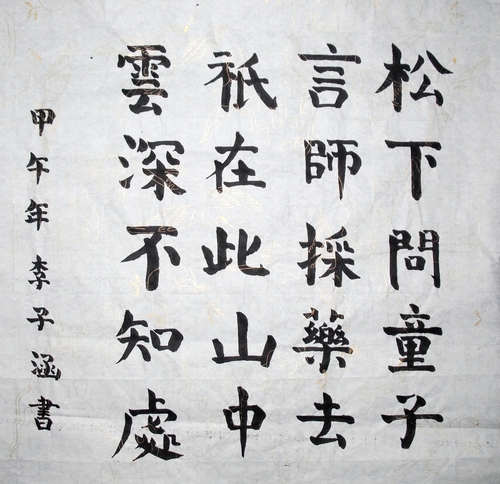 松下問童子
言師採藥去
祇在此山中
雲深不知處
甲午年李子涵書